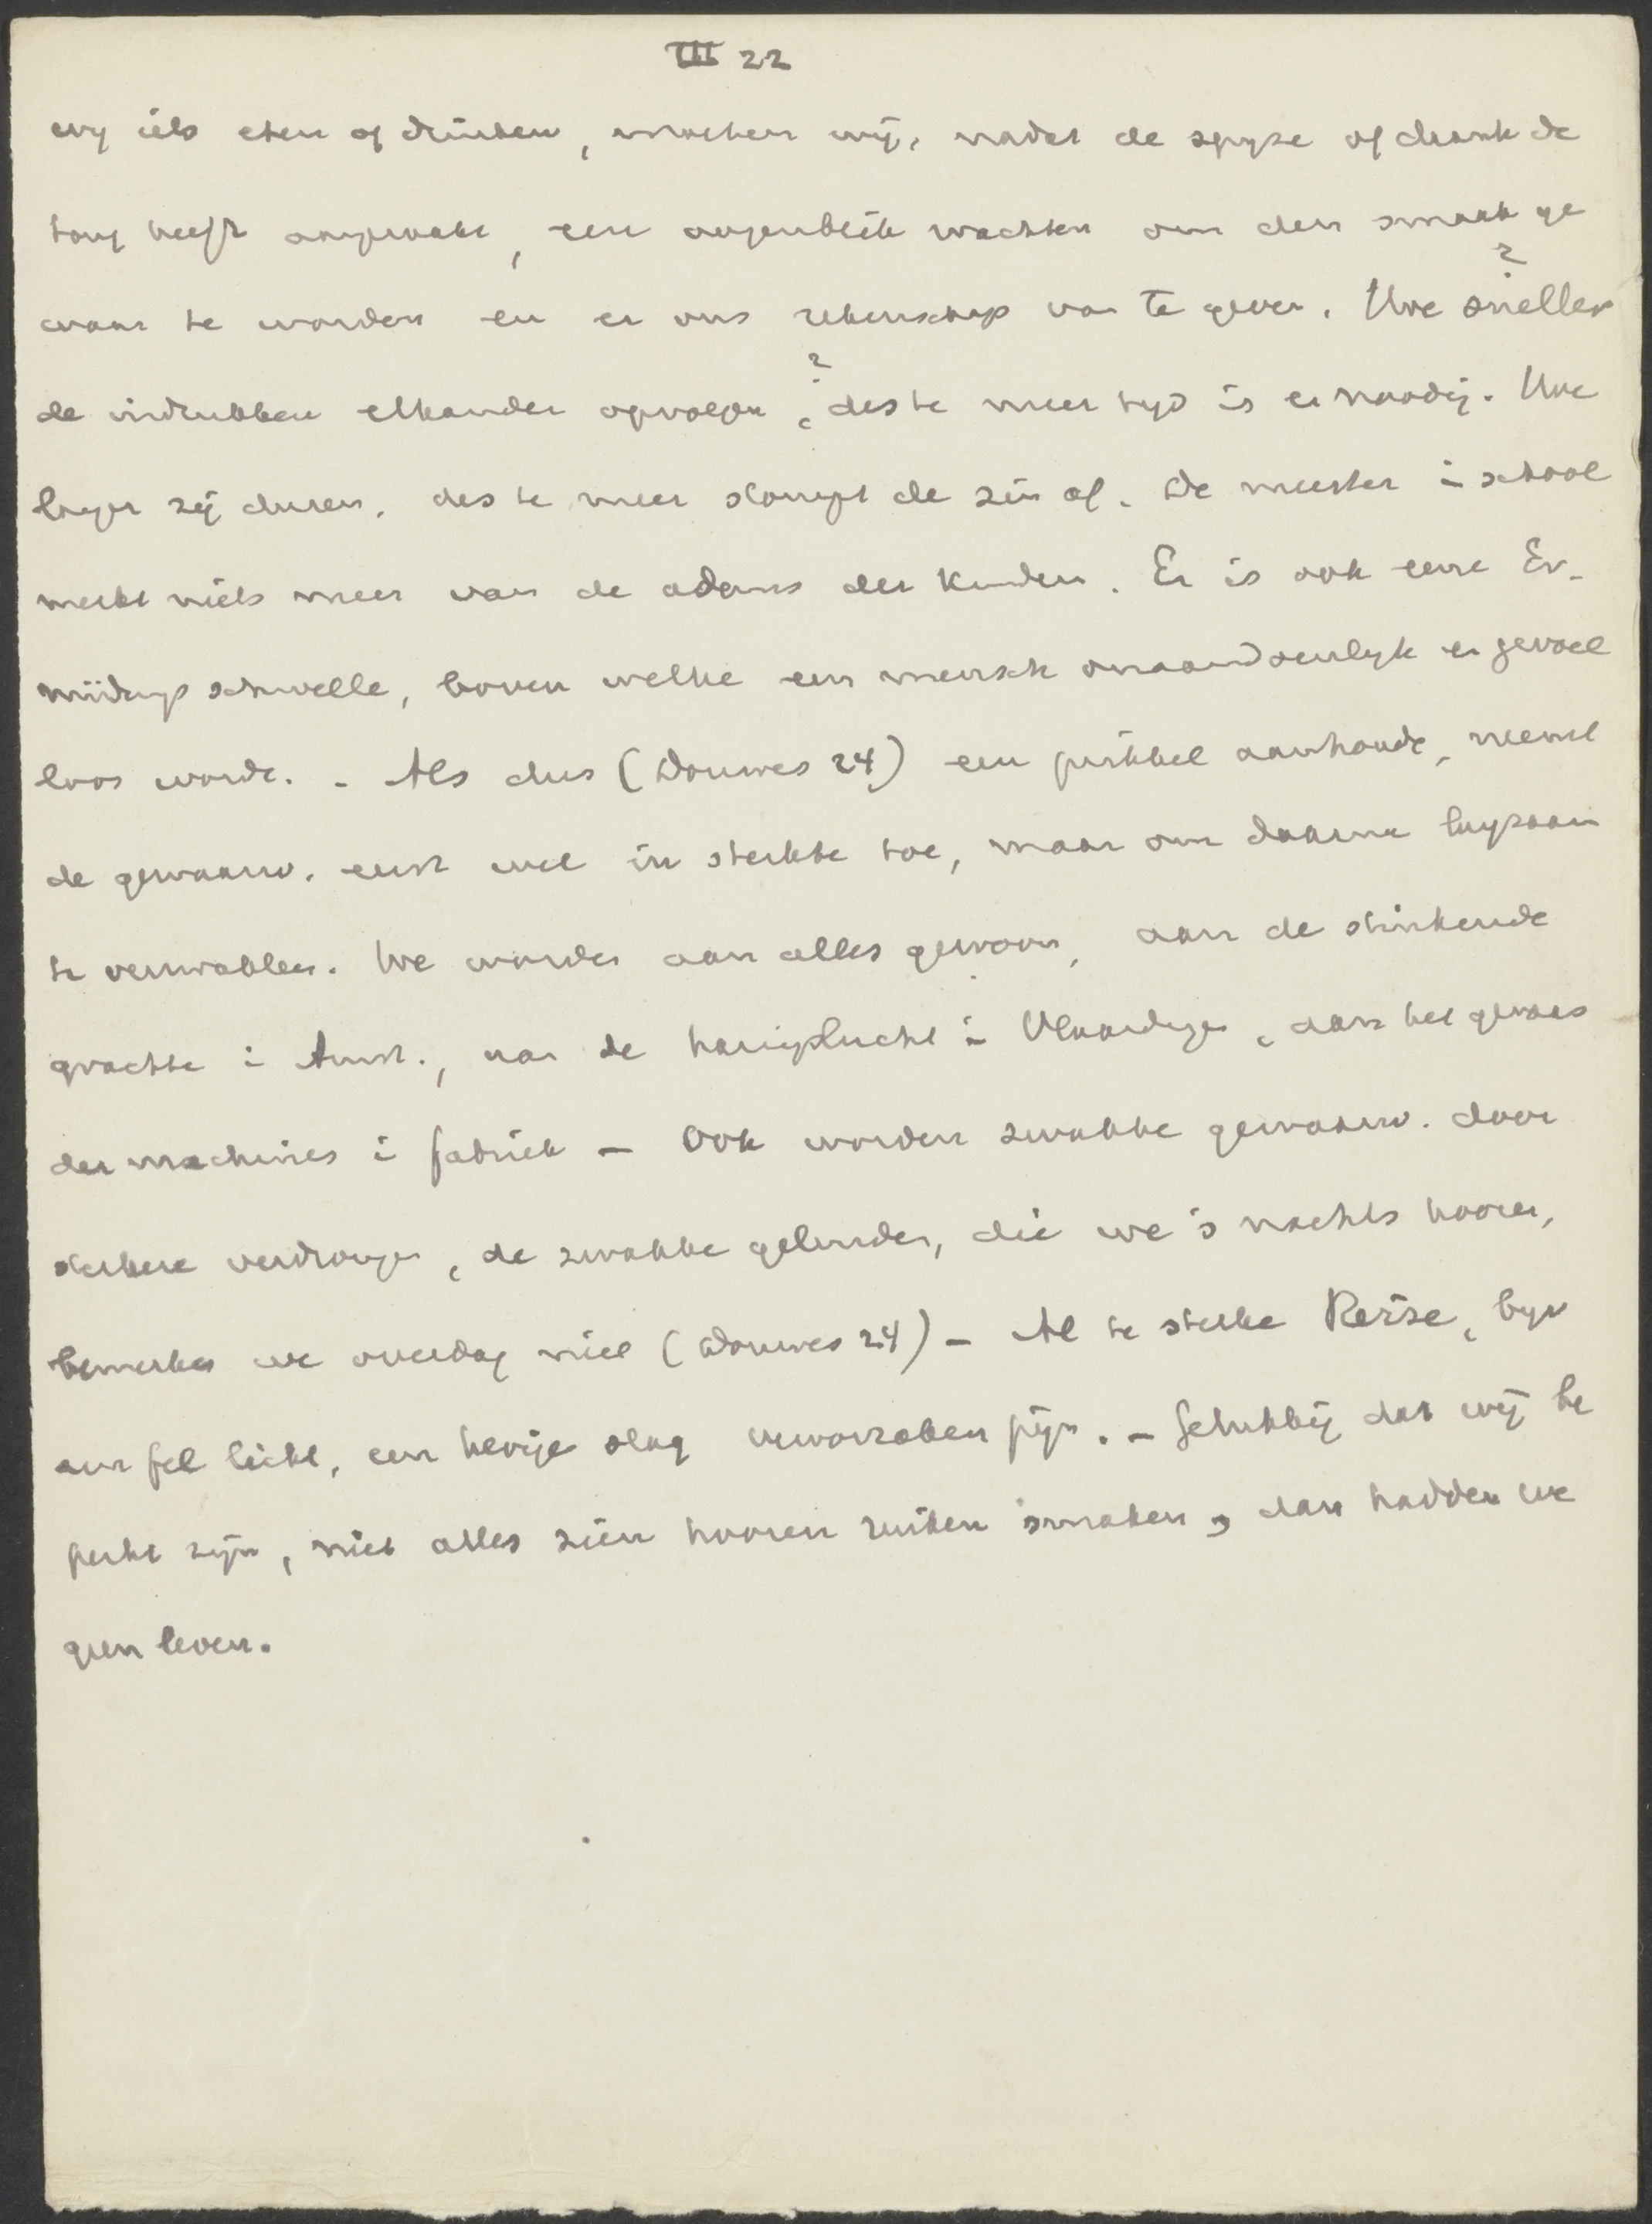 III 22
wy iets eten of drinken, moeten wij, nadat de spyze of drank de
tong heeft aangeraakt, een oogenblik wachten om den smaak ge
waar te worden en er ons rekenschap van te geven. Hoe sneller ?
de indrukken elkander opvolgen, ? des te meer tyd is er noodig. Hoe
langer zij duren, des te meer stompt de zin af. De meester i school
merkt niets meer van de adems der kinderen. Er is ook eene Er-
müdungsschwelle, boven welke een mensch onaandoenlyk en gevoel
loos wordt. - Als dus (Douwes 24) een prikkel aanhoudt, neemt
de gewaarw. eerst wel in sterkte toe, maar om daarna langzaam
te verzwakken. We worden aan alles gewoon, aan de stinkende
grachte i Amst., aan de haringlucht i Vlaardingen, aan het geraas
der machines i fabriek - Ook worden zwakke gewaarw. door
sterkere verdrongen, de zwakke geluiden, die we 's nachts hooren,
bemerken we overdag niet (Douwes 24) - Al te sterke Reize, byv
een fel licht, een hevige slag veroorzaken pijn. - Gelukkig dat wij be
perkt zijn, niet alles zien hooren ruiken smaken, dan hadden we
geen leven.